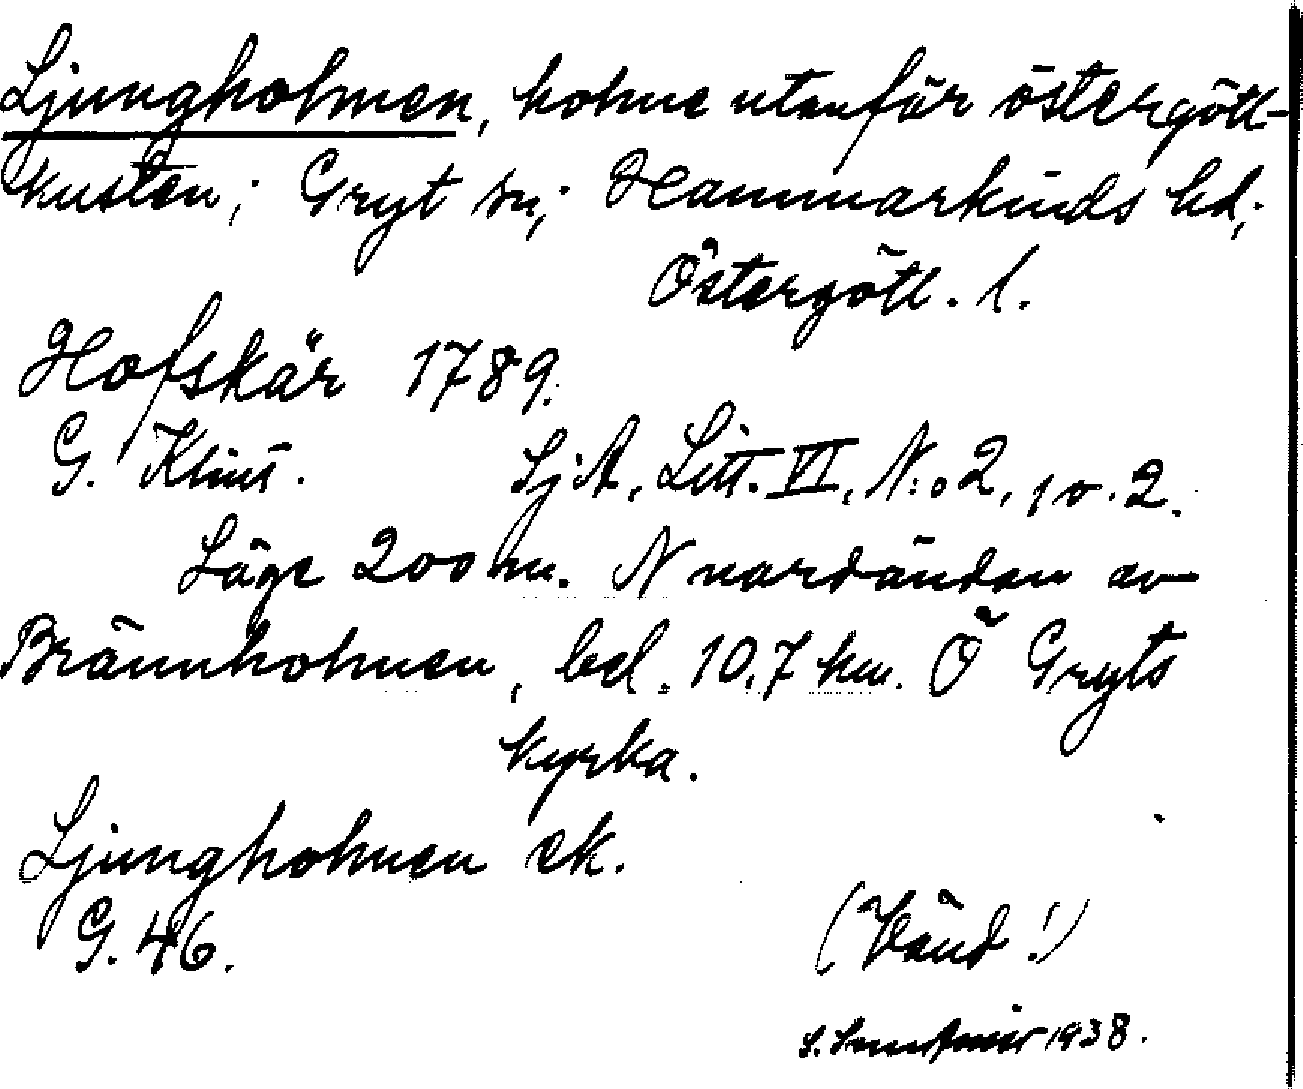 Ljungholmen, holme utanför östergötl-
kusten; Gryt sn; Hammarkinds hd;
Östergötl. l.
Hofskär 1789.
G. Klint. SjA, Litt. VI, N:o 2, 1 o. 2.
Läge 200 m. N nordändan av
Brännholmen, bel. 10,7 km. Ö Gryts
kyrka.
Ljungholmen ek.
G. 46.
(Vänd!)
S. 1938.